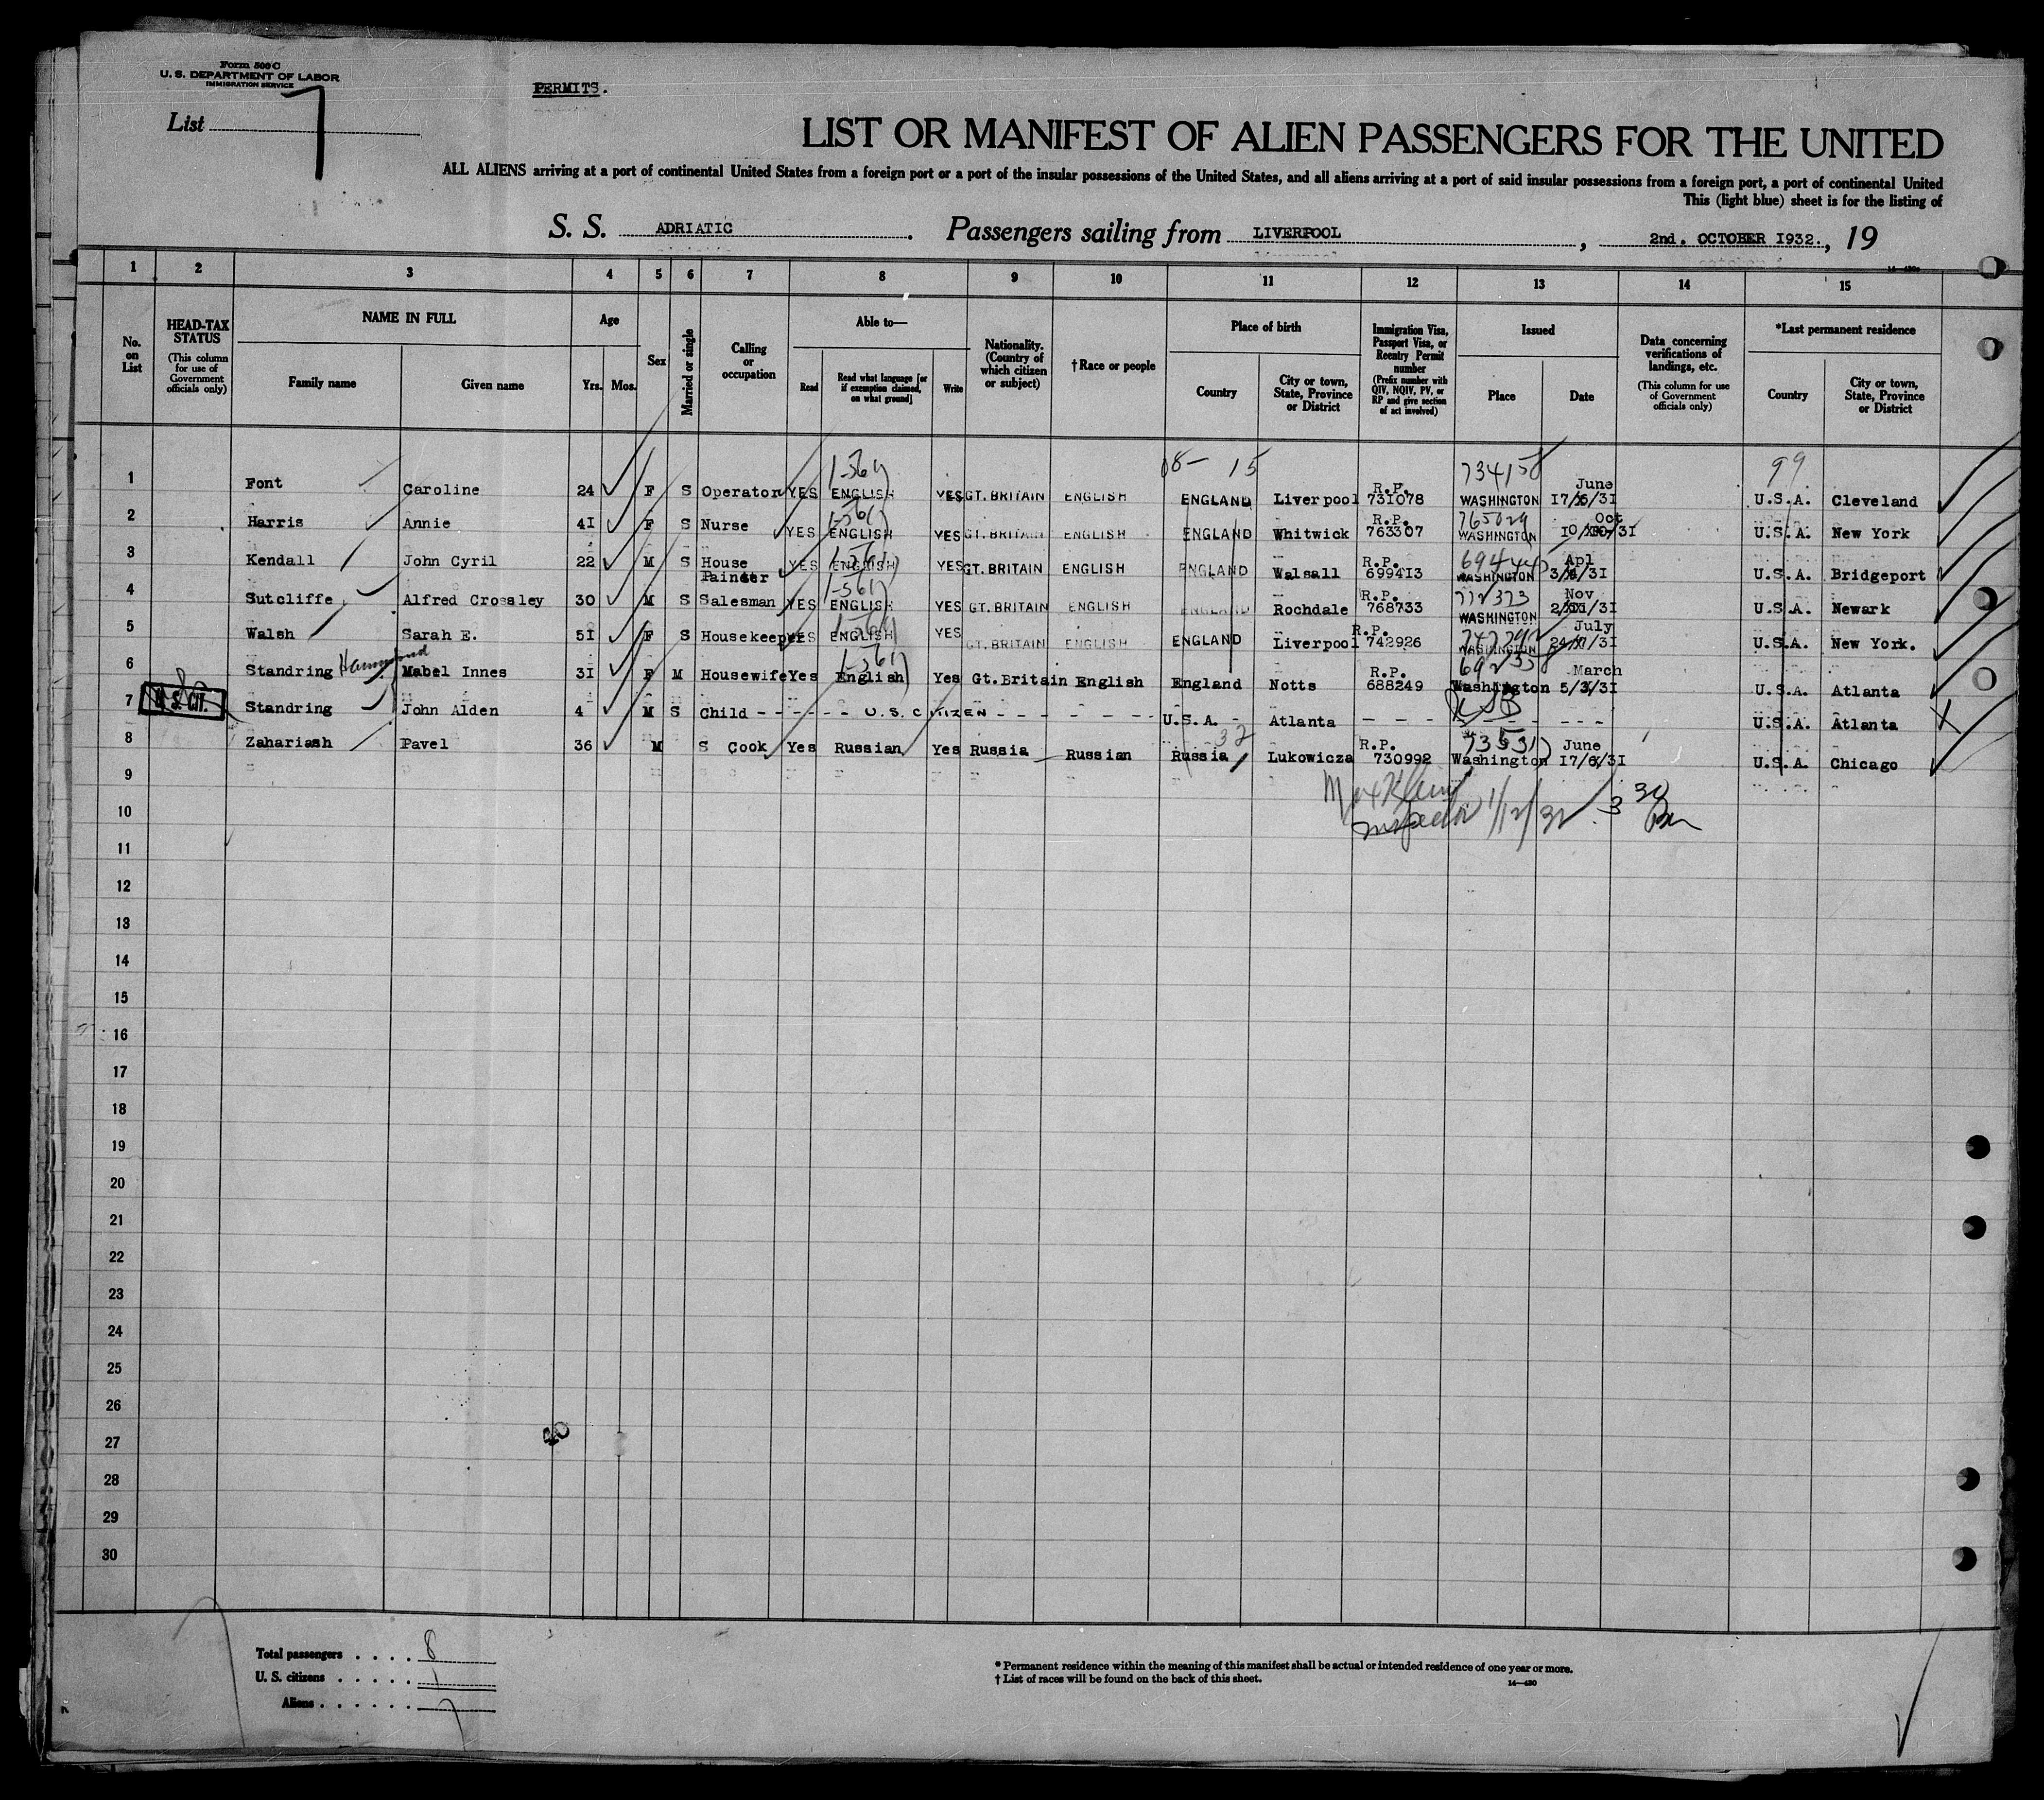 Form 500 C
U. S. DEPARTMENT OF LABOR
IMMIGRATION SERVICE
List 7
PERMITS.
LIST OR MANIFEST OF ALIEN PASSENGERS FOR THE UNITED
ALL ALIENS arriving at a port of continental United States from a foreign port or a port of the insular possessions of the United States, and all aliens arriving at a port of said insular possessions from a foreign port, a port of continental United
This (light blue) sheet is for the listing of
S. S. ADRIATIC. Passengers sailing from LIVERPOOL, 2nd. OCTOBER 1932., 19
1 2 3 4 5 6 7 8 9 10 11 12 13 14 15
No. on List
HEAD-TAX STATUS (This column for use of Government officials only)
NAME IN FULL Family name Given name
Age Yrs. Mos.
Sex
Married or single
Calling or occupation
Able to— Read Read what language [or if exemption claimed, on what ground] Write
Nationality. (Country of which citizen or subject)
†Race or people
Place of birth Country City or town, State, Province or District
Immigration Visa, Passport Visa, or Reentry Permit number (Prefix number with QIV, NQIV, PV, or RP and give section of act involved)
Issued Place Date
Data concerning verifications of landings, etc. (This column for use of Government officials only)
*Last permanent residence Country City or town, State, Province or District
15 734158 99
1 Font Caroline 24 F S Operator YES ENGLISH YES GT. BRITAIN ENGLISH ENGLAND Liverpool R.P. 731078 WASHINGTON 17/6/31 June U.S.A. Cleveland
2 Harris Annie 41 F S Nurse YES ENGLISH YES GT. BRITAIN ENGLISH ENGLAND Whitwick R.P. 763307 765029 WASHINGTON 10/10/31 Oct U.S.A. New York
3 Kendall John Cyril 22 M S House Painter YES ENGLISH YES GT. BRITAIN ENGLISH ENGLAND Walsall R.P. 699413 WASHINGTON 3/4/31 Apl U.S.A. Bridgeport
4 Sutcliffe Alfred Crossley 30 M S Salesman YES ENGLISH YES GT. BRITAIN ENGLISH ENGLAND Rochdale R.P. 768733 772323 WASHINGTON 2/11/31 Nov U.S.A. Newark
5 Walsh Sarah E. 51 F S Housekeeper YES ENGLISH YES GT. BRITAIN ENGLISH ENGLAND Liverpool R.P. 742926 WASHINGTON 24/7/31 July U.S.A. New York.
6 Standring Hammond Mabel Innes 31 F M Housewife Yes English Yes Gt.Britain English England Notts R.P. 688249 692358 Washington 5/3/31 March U.S.A. Atlanta
7 U.S. CIT. Standring John Alden 4 M S Child - - - - - U.S. CITIZEN - - - - - - U.S.A. - Atlanta - - - - - - - U.S.A. Atlanta X
8 Zahariash Pavel 36 M S Cook Yes Russian Yes Russia Russian Russia Lukowicza R.P. 730992 Washington 17/6/31 June U.S.A. Chicago
9
Max Klein
10 Inspector
11
12
13
14
15
16
17
18
19
20
21
22
23
24
25
26
27 40
28
29
30
Total passengers . . . . 8
U. S. citizens . . . . . 1
Aliens . . . . . . 7
* Permanent residence within the meaning of this manifest shall be actual or intended residence of one year or more.
† List of races will be found on the back of this sheet.
14—430